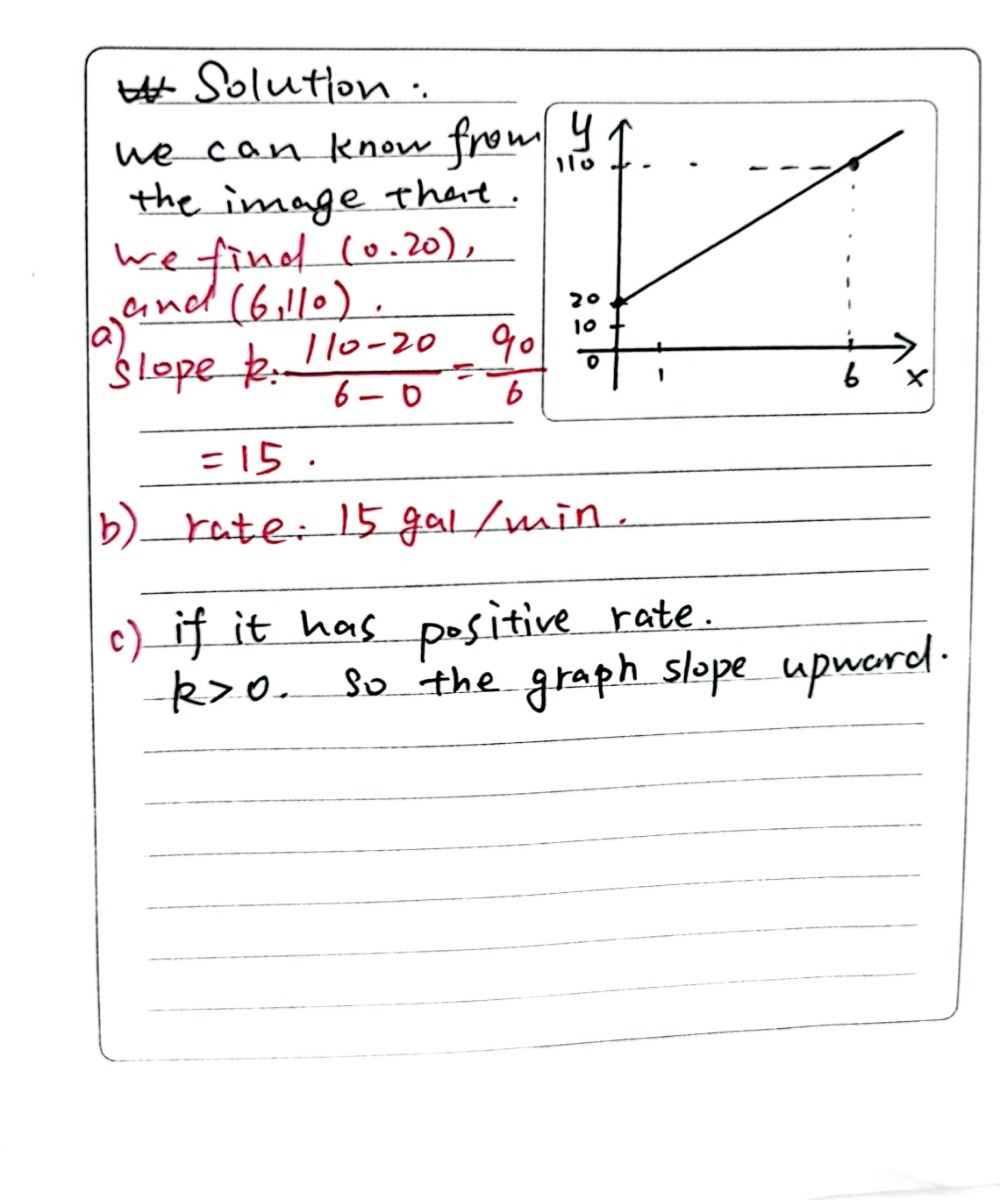 Solution :.
we can know from
the image that.
we find (0.20),
and (6,110).
a)
slope k: 110-20 / 6-0 = 90 / 6
= 15.
b) rate: 15 gal/min.
c) if it has positive rate.
k>0. so the graph slope upward.
y
110
20
10
0
1
6
x